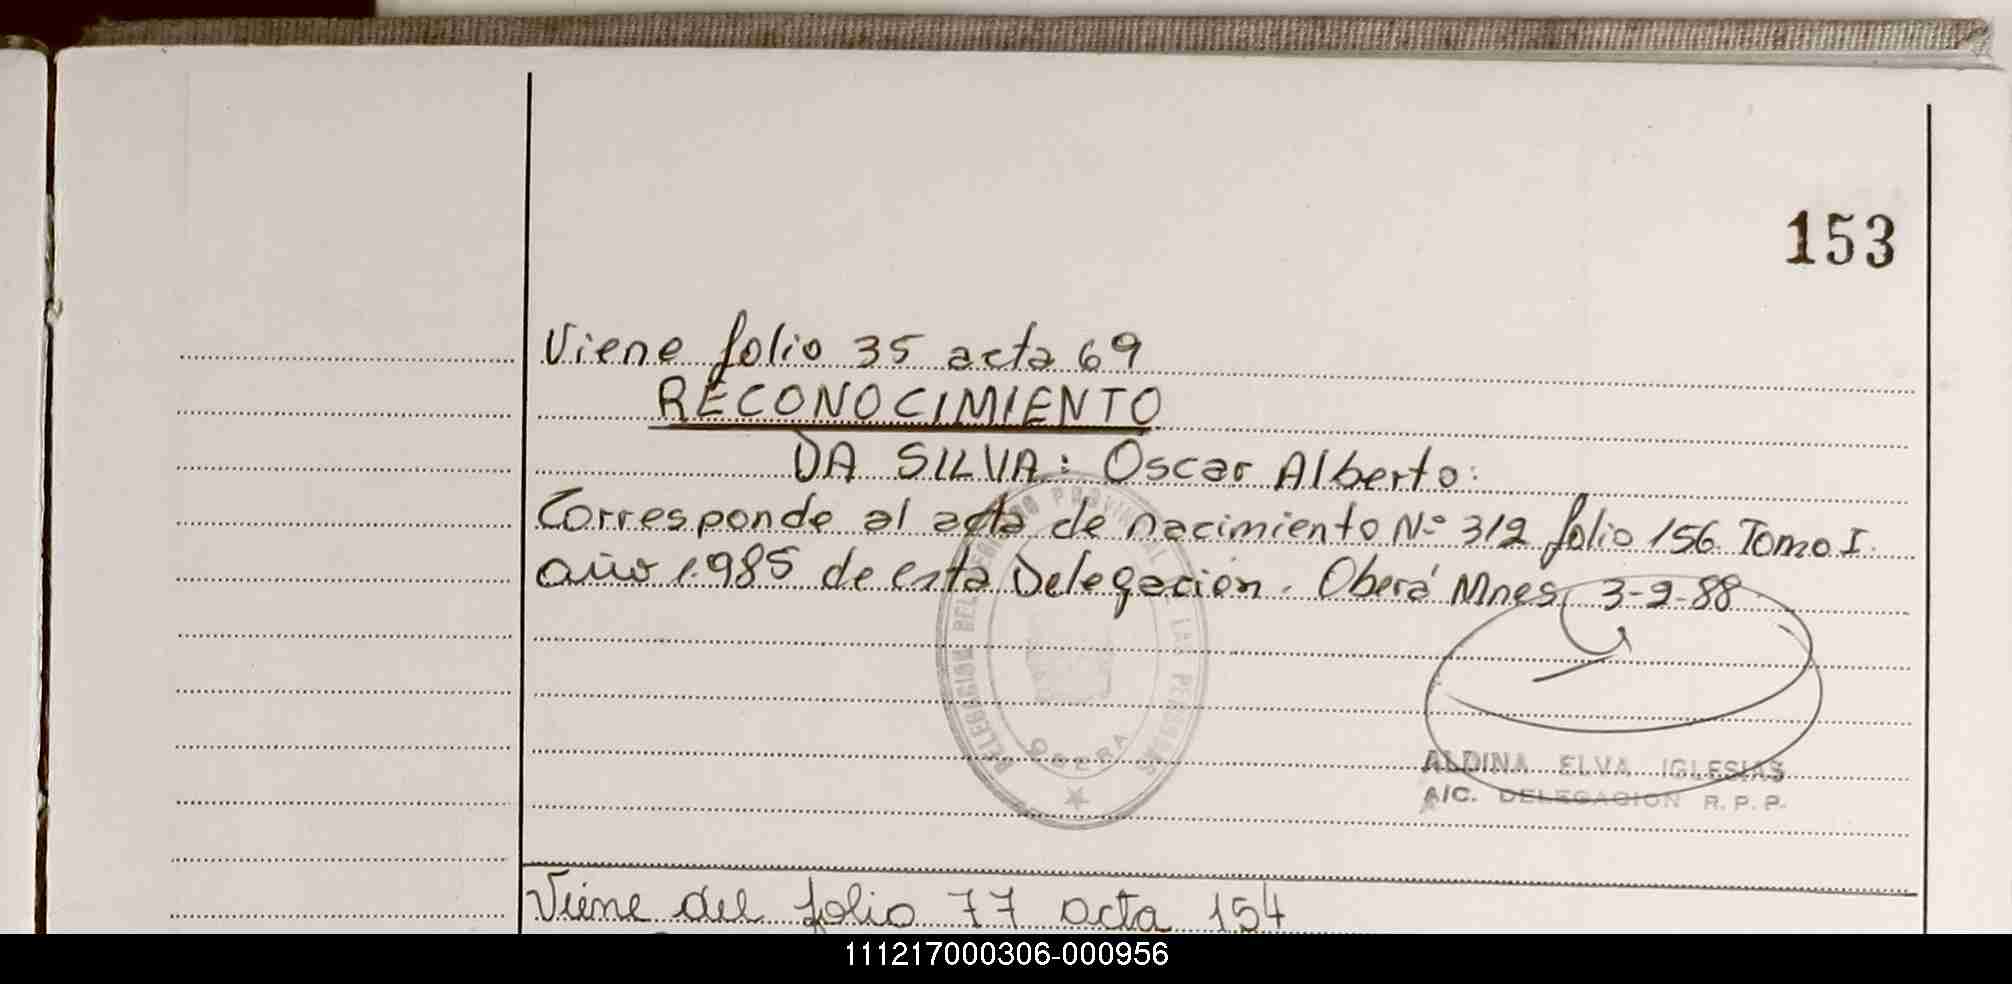 153
Viene folio 35 acta 69
RECONOCIMIENTO
DA SILVA: Oscar Alberto:
Corresponde al acta de nacimiento Nº 312 folio 156 Tomo I.
año 1.985 de esta Delegación. Oberá Mnes 3-2-88
DELEGACION DEL REGISTRO PROVINCIAL DE LAS PERSONAS
OBERA
ALDINA ELVA IGLESIAS
A/C. DELEGACION R. P. P.
Viene del folio 77 acta 154
111217000306-000956